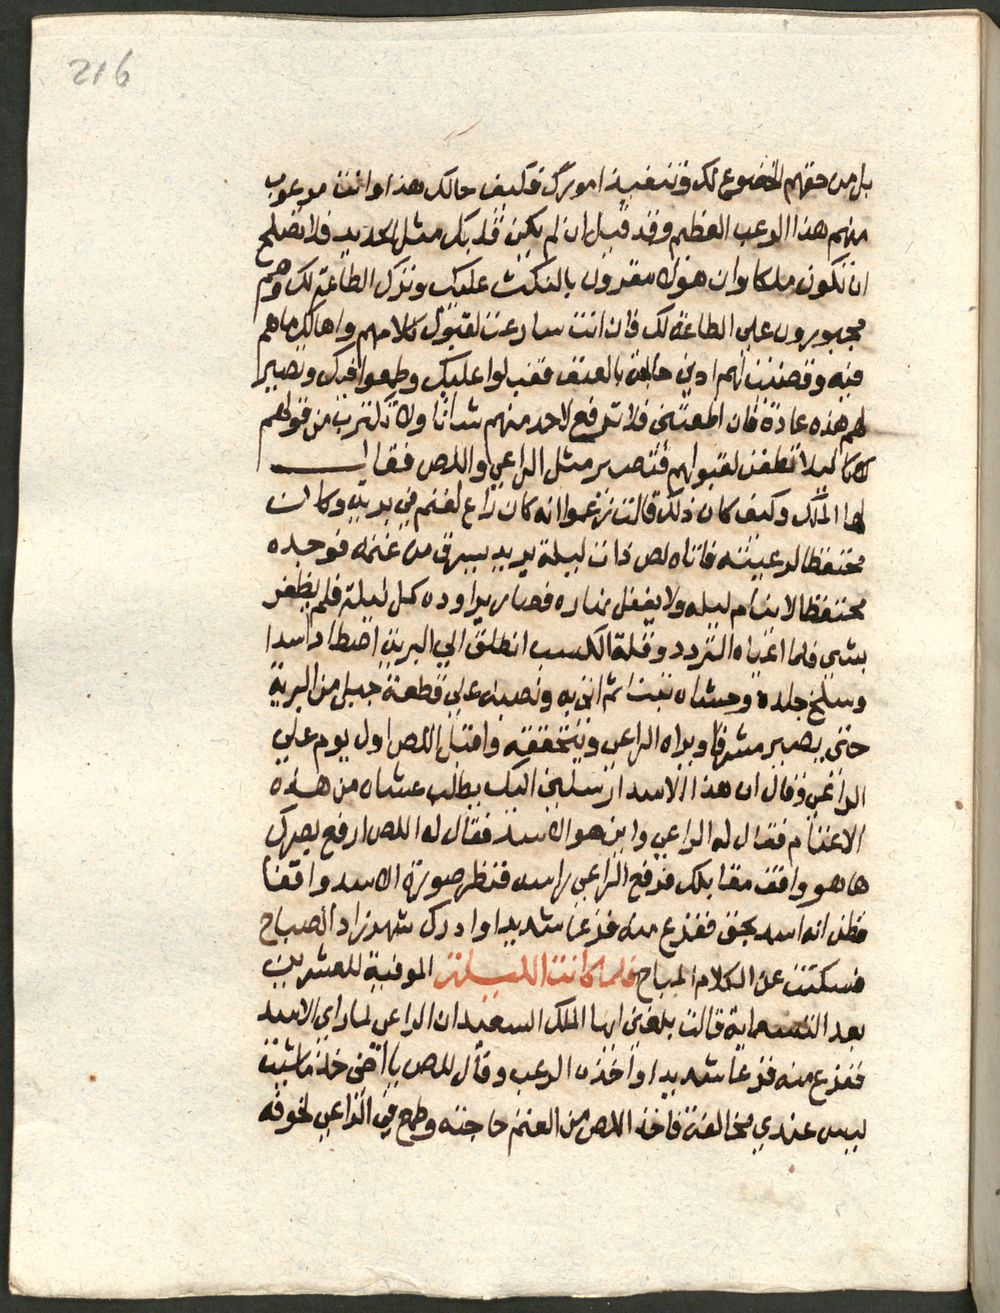 216
بل من حقهم الخضوع لك وتنفيذ امورك فكيف حالك هذا وانت مرعوب
منهم هذا الرعب العظيم وقد قيل ان لم يكن قلبك مثل الحديد فلا تصلح
ان تكون ملكا وان هولاء مغرون بالنكث عليك وترك الطاعة لك وهم
مجبورون علي الطاعة لك فان انت سارعت لقبول كلامهم واهالك ما هم
فيه وقضيت لهم ادني حاجة بالعنف فقبلوا عليك وطمعوا فيك وتصير
لهم هذه عادة فان اطعتني فلا ترفع لاحد منهم شانا ولا تكترث من قولهم
كلاما ليلا تطفن لقبولهم فتصير مثل الراعي واللص فقال
لها الملك وكيف كان ذلك قالت زعموا انه كان راع لغنم في برية وكان
محتفظا لرعيته فاتاه لص ذات ليلة يريد يسرق من غنمه فوجده
محتفظا لا ينام ليله ولا يغفل نهاره فصار يراوده كل ليلة فلم يظفر
بشي فلما اعياه التردد وقلة الكسب انطلق الي البرية اصطاد اسدا
وسلخ جلده وحشاه تبنا ثم اتى به ونصبه علي قطعة جبل من البرية
حتي يصير مشرفا ويراه الراعي ويتحققه واقبل اللص اول يوم علي
الراعي وقال ان هذا الاسد ارسلني اليك يطلب عشاه من هذه
الاغنام فقال له الراعي واين هو الاسد فقال له اللص ارفع بصرك
ها هو واقف مقابلك فرفع الراعي راسه فنظر صورة الاسد واقفا
فظن انه اسد بحق ففزع منه فزعا شديدا وادرك شهرزاد الصباح
فسكتت عن الكلام المباح فلما كانت الليلة الموفية للعشرين
بعد التسعماية قالت بلغني ايها الملك السعيد ان الراعي لما راي الاسد
ففزع منه فزعا شديدا واخذه الرعب وقال للص يا اخي خذ ما شيت
ليس عندي مخالفة فاخذ اللص من الغنم حاجته وطمع في الراعي لخوفه